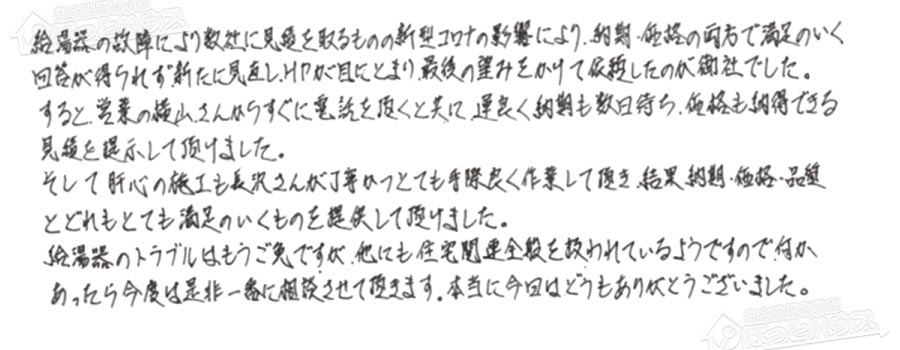 給湯器の故障により数社に見積を取るものの新型コロナの影響により、納期・価格の両方で満足のいく
回答が得られず新たに見直し、HPが目にとまり、最後の望みをかけて依頼したのが御社でした。
すると、営業の横山さんからすぐに電話を頂くと共に、運良く納期も数日待ち、価格も納得できる
見積を提示して頂けました。
そして肝心の施工も長沢さんが丁寧かつとても手際良く作業して頂き、結果、納期・価格・品質
とどれもとても満足のいくものを提供して頂けました。
給湯器のトラブルはもうご免ですが、他にも住宅関連全般を扱われているようですので、何か
あったら今度は是非一番に相談させて頂きます。本当に今回はどうもありがとうございました。
ほっとハウス